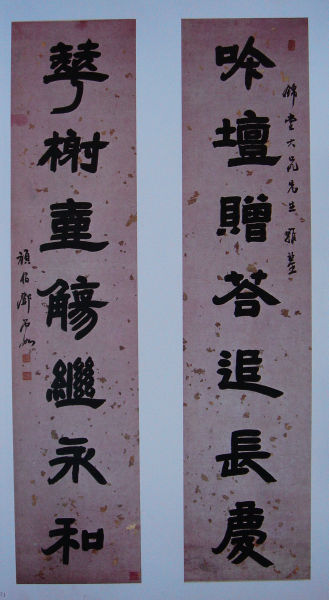 錦堂大兄先生雅鑒
吟壇贈荅追長慶
華榭壺觴繼永和
頑伯鄧石如